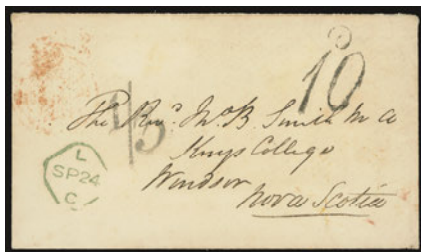 10
1/5
The Revd. Wm. B. Smith M A
Kings College
Windsor
Nova Scotia
L
SP 24
C